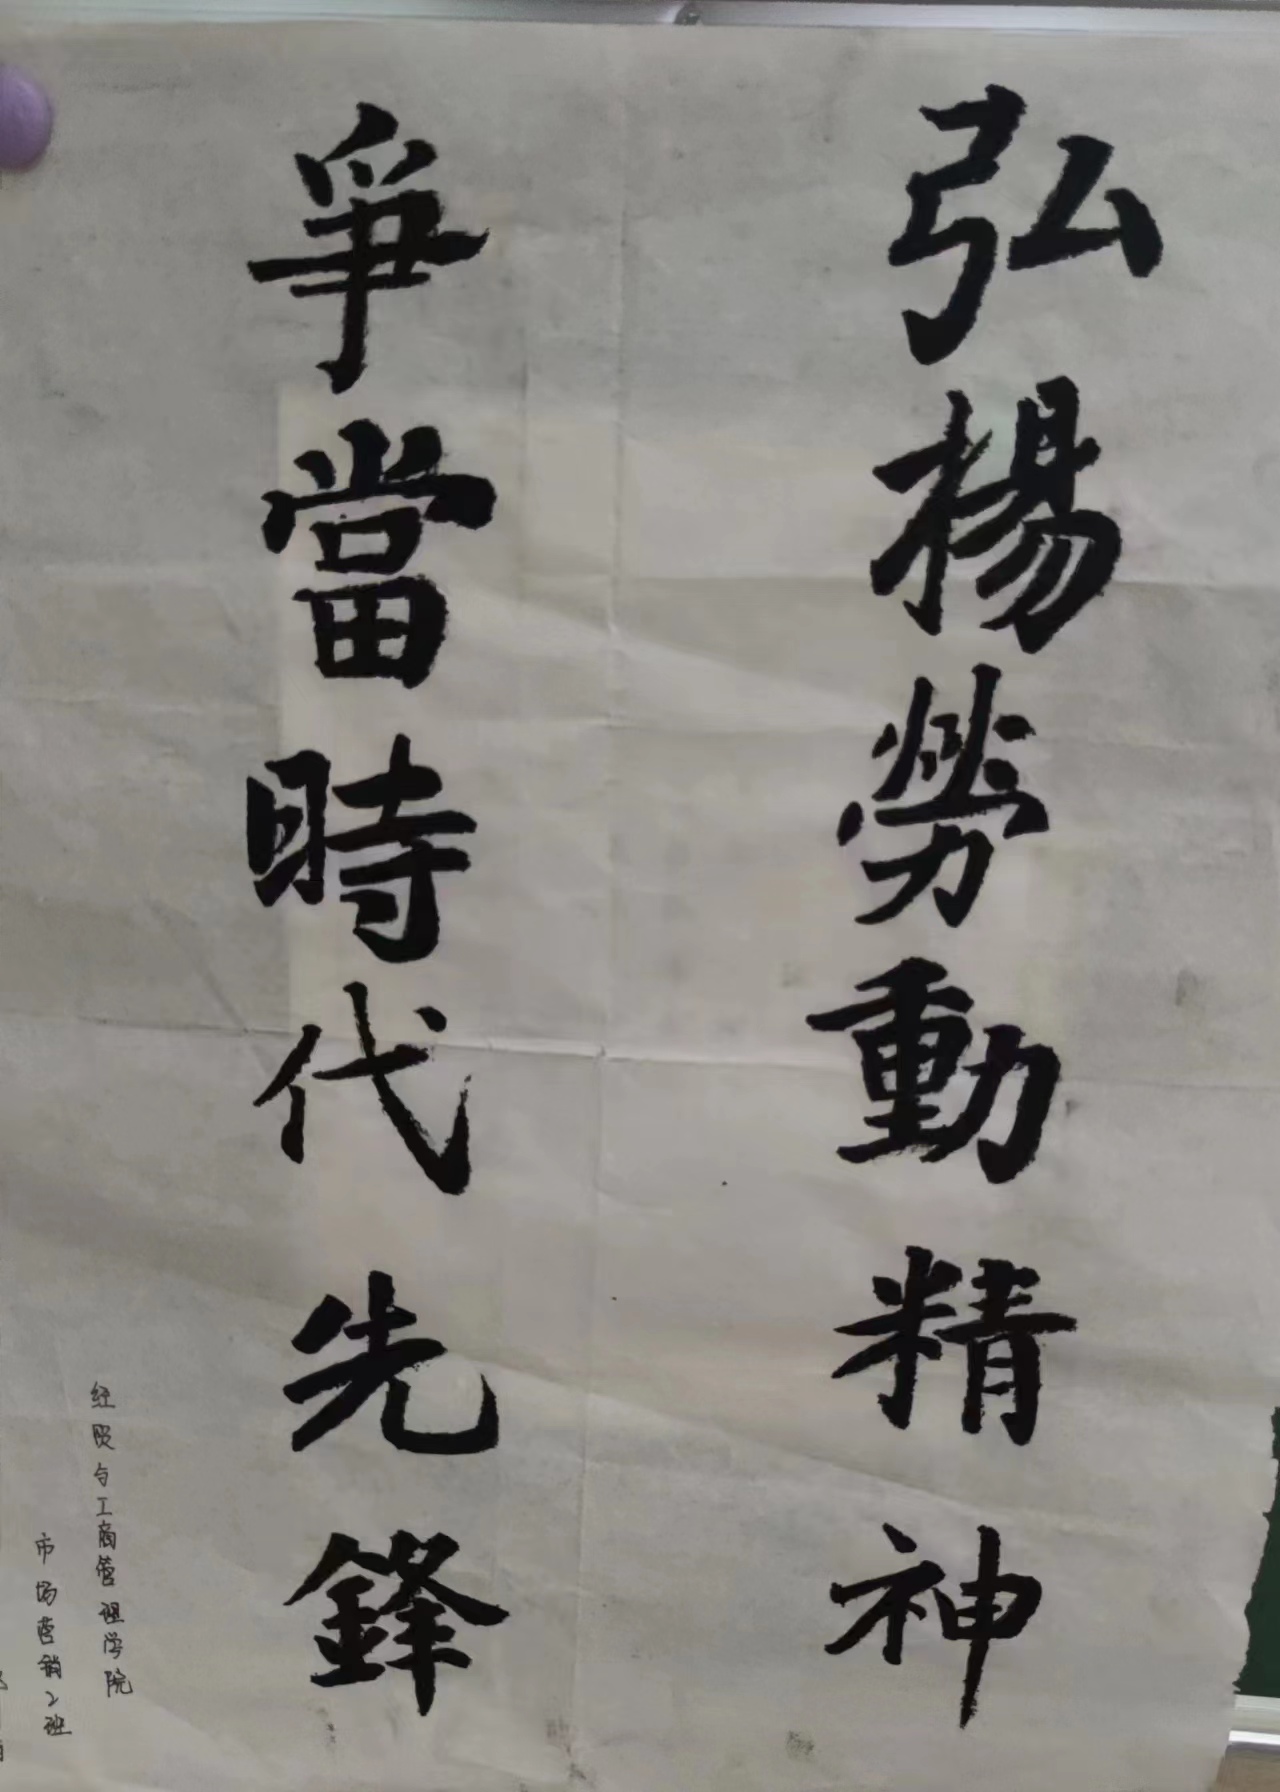 弘揚勞動精神
爭當時代先鋒
经贸与工商管理学院
市场营销2班